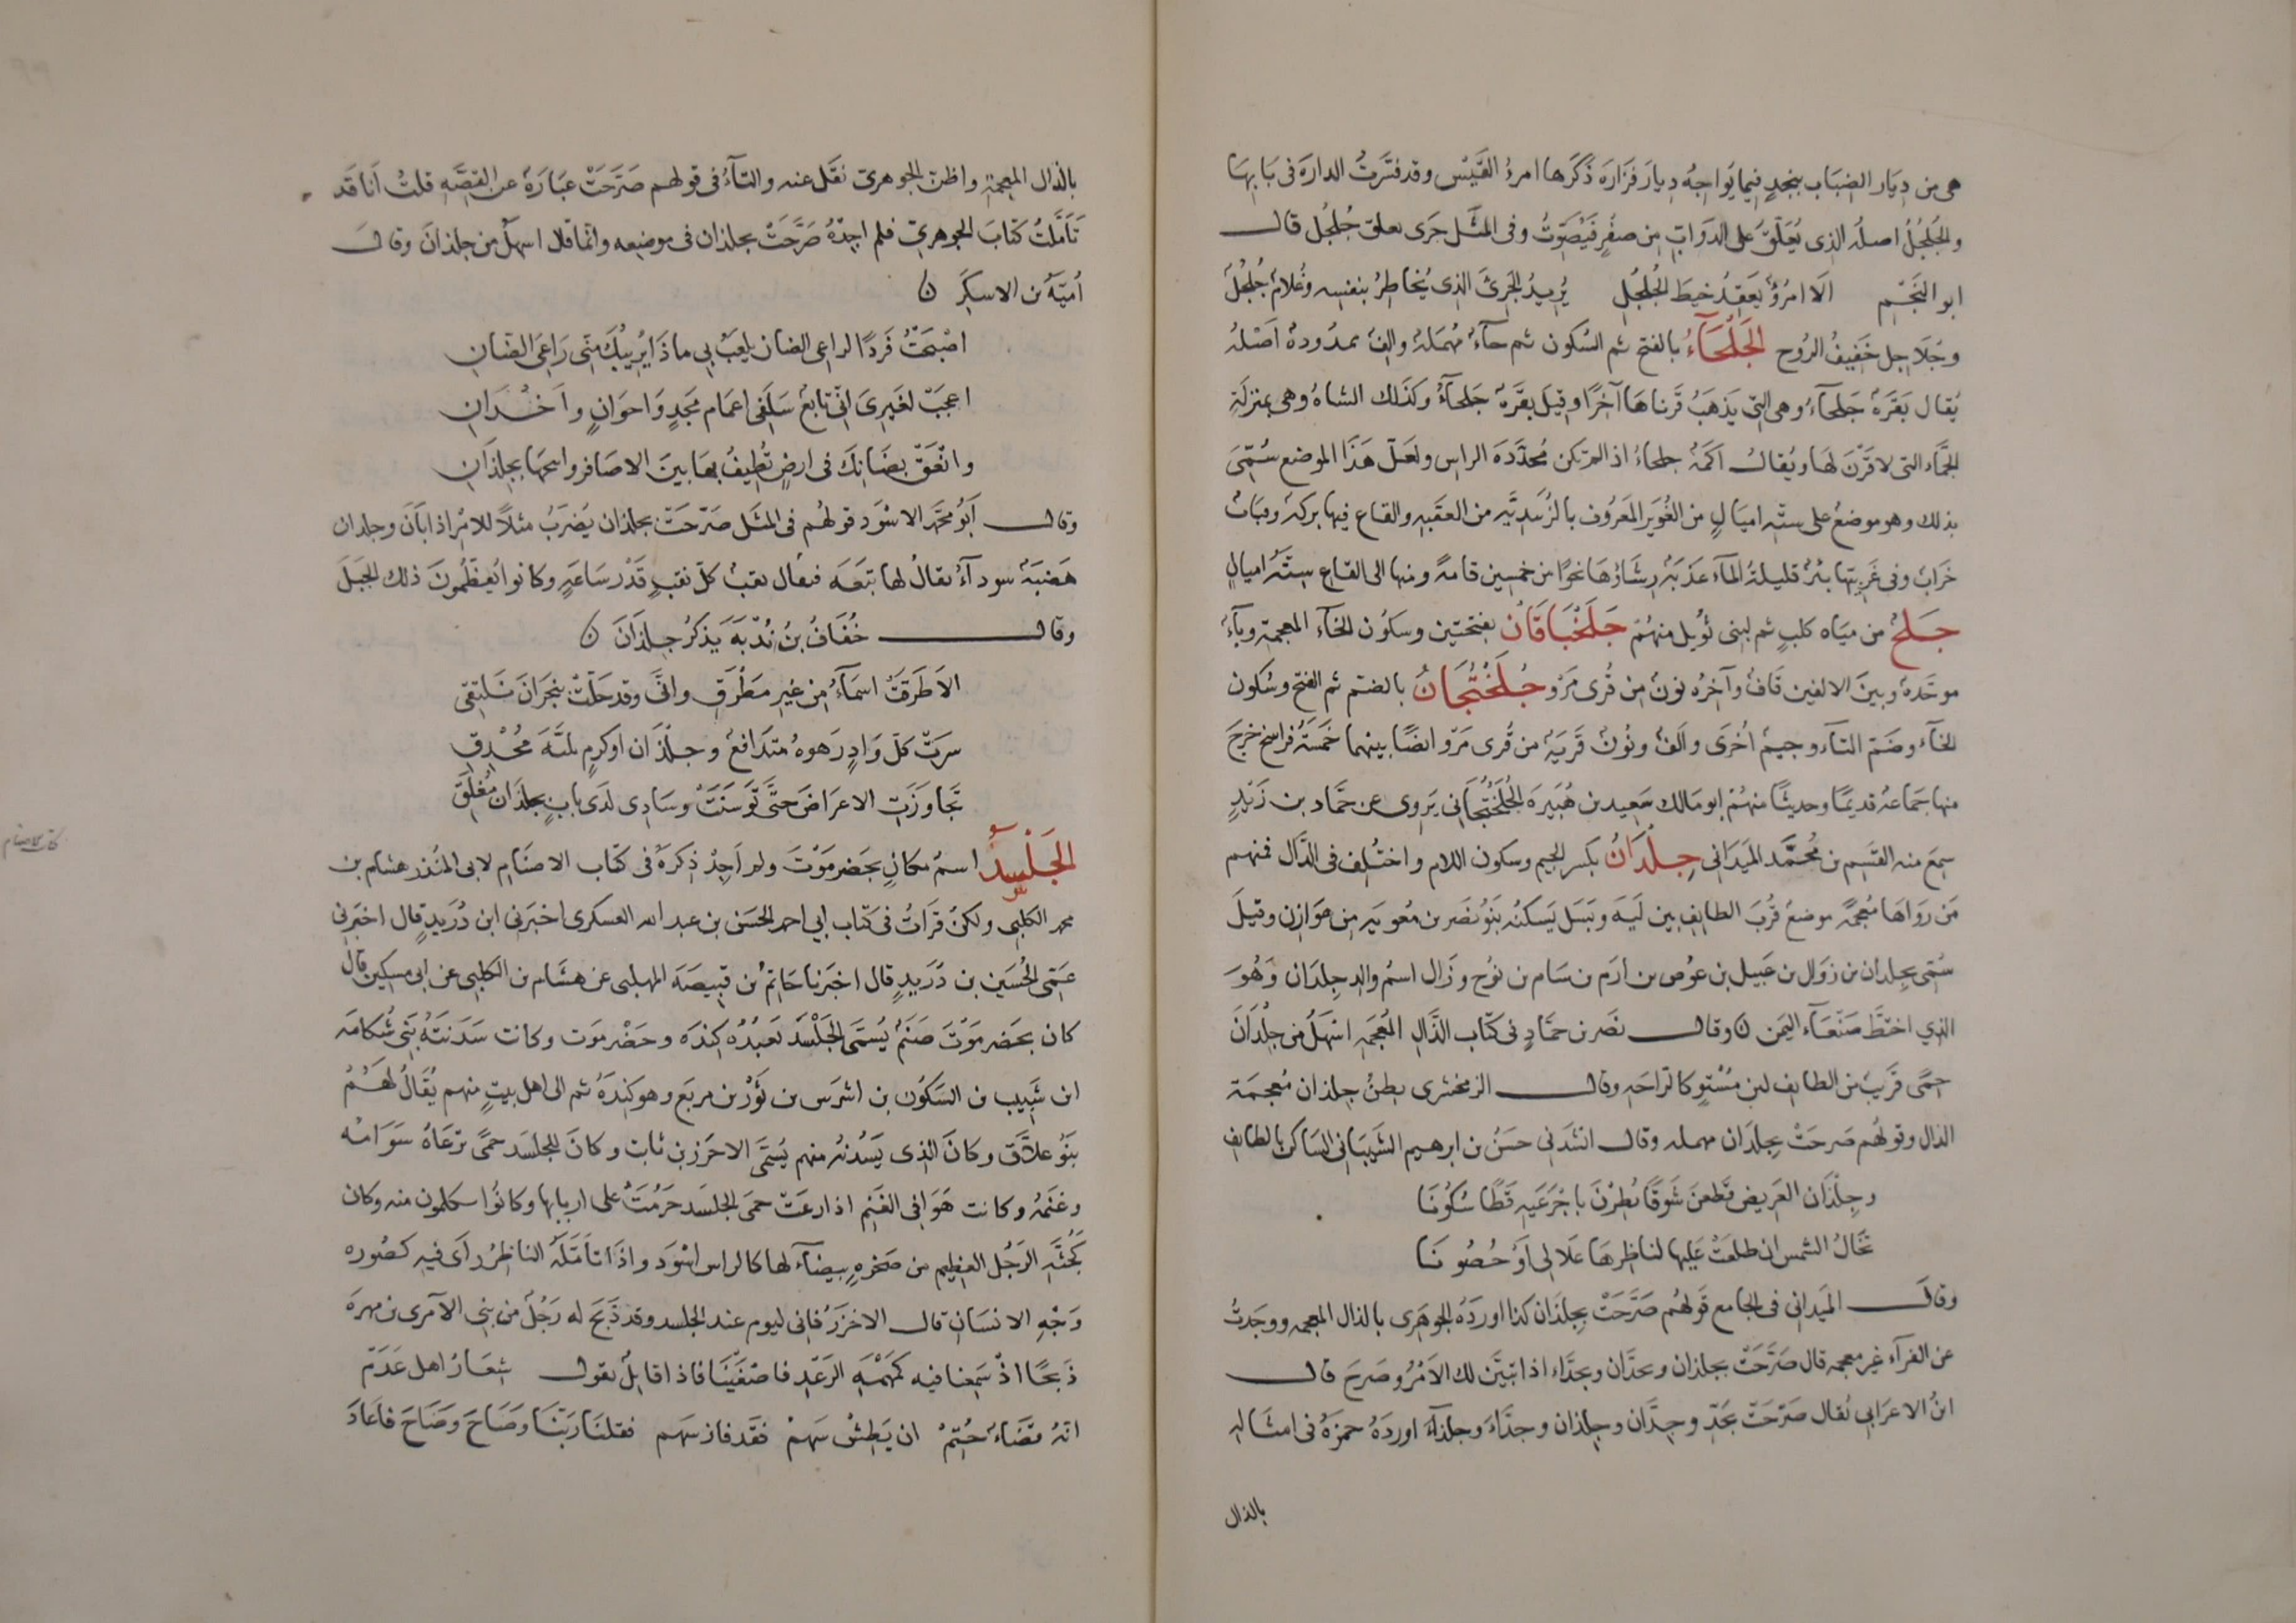 هى من دِيَار الضِبَاب بنجدٍ فيما يُوَاجِهُ دِيارَ فَزَارَه ذَكَرَها امرءُ القَيْس وقد فسَّرتُ الدارَةَ فى بَابِهَا
والجُلجُلُ اصلُه الذى يُعَلَّقُ على الدَوَابِّ من صفُرٍ فيُصَوِّتُ وفى المثَل جَرى بعلق جُلجُل قال
ابو النَجْم الَا امرُؤٌ يَعقِدُ خيطَ الجُلجُل يُريدُ الجَرِئَ الذى يُخاطِرُ بنفسِه وغُلامٌ جُلجُلٌ
وجُلَاجِل خَفِيفُ الرُوح الجَلْحَآءُ بالفتح ثم السُكون ثم حآءٌ مُهمَلةٌ والِفٌ ممدُودةٌ اَصْلُه
يُقال بَقَرَةٌ جَلحآءُ وهى التى يَذهَبُ قَرناهَا آخِرًا وقيل بقَرَةٌ جَلحآءُ وكذَلك الشاةُ وهى بمنزلَةِ
الجَمَّاء التى لا قَرْنَ لها ويُقال اكَمَةٌ جلحاءُ اذا لم تكن مُحدَّدَةَ الراس ولعَلّ هَذَا الموضع سُمّىَ
بذلك وهو موضعٌ على ستّه اميَالٍ من الغُوَير المَعرُوف بالزُبَيديَّه من العقَبه والقاع فيها بركةٌ وقبَابٌ
خرَابٌ وفى غَربِيّها بئرٌ قليلةُ المآء عذبَةٌ رشَاؤهَا نحوًا من خمسين قامةً ومنها الى القاع سِتَّه اميالٍ
جَلخٌ من ميَاه كلبٍ ثم لبنى تُوَيل منهُمْ جَلَخْبَاقَانُ بفتحتين وسكُون الخآء المعجمة وبآءٌ
موحَّدةٌ وبينَ الالفين قَافٌ وآخرُه نونٌ من قُرى مَرْو جُلَخْتُجَانُ بالضم ثم الفتح وسُكون
الخآء وضَمّ التآء وجيمٌ اُخرَى والَفٌ ونُونٌ قَريَةٌ من قُرى مَرْو ايضًا بينهما خمسَةُ فراسخ خرجَ
منها جَمَاعةٌ قديمًا وحديثًا منهُمْ ابو مَالك سَعِيد بن هُبَيرَة الجُلَخْتُجَانى يَروى عن حمَّاد بن زَيْدٍ
سمعَ منه القسَم بن مُحمَّد المَيدَانى جِلْدَانُ بكسر الجيم وسكون اللام واختُلِف فى الدَّال فمنهم
مَن رَوَاهَا مُعجمَةً موضعٌ قُربَ الطايف بين لَيّةَ وبَسَل يَسكنُه بَنُو نَصر بن مُعويه من هوَازن وقيلَ
سُمّى بجلدان بن زوَال بن عَبيل بن عوُص بن ارَم بن سَام بن نوُح وزَال اسمُ والد جِلدَان وَهُوَ
الذي اختطَّ صَنْعَآء اليَمن ن وقال نَصر بن حمَّادٍ فى كتَاب الذَّالِ المُعجَمَه اسْهَلُ من جِلْذَانَ
حِمًى قَريبٌ من الطايف لين مُسْتوٍ كالرَاحَه وقال الزمخشرى بطنُ جِلذان مُعجمَة
الذال وقولهُم صَرحَتْ بجلدَان مهمله وقال انشدَنى حسَنُ بن ابرهيم الشَيبَانى السَاكن بالطايف
وجِلْدَان العَريض قطعنَ شَوقًا يُطِرْنَ باجْرَعَيه قَطًا سُكُونَا
تخَالُ الشمسَ ان طلعَتْ عَليها لناظرِهَا عَلَالِى اَوْ حُصُونَا
وقالَ المَيدانى فى الجامع قَولهُم صَرَّحَتْ بجلذَان كذا اورَدَهُ الجوهَرى بالذال المعجمه ووجَدتُ
عن الفرآء غيرَ معجمه قال صَرَّحَتْ بجلذان وبجدَّان وبجدَّاء اذا تبَيَّنَ لك الاَمْرُ وصَرحَ قال
ابنُ الاعرَابى يُقال صَرّحَتْ بجَدّ وجِدَّان وجِلذان وجدَّاءَ وجلذآءَ اوردَهُ حمزَةُ فى امثَاله
بالذال
بالذال المعجمةِ واظنّ الجوهرىّ نقَل عنه والتآءُ فى قولهم صَرَّحَتْ عبَارَةٌ عن القصَّه قلتُ اَنا قَد
تَامَّلتُ كتَابَ الجَوهرىّ فلم اجِدْهُ صَرَّحَتْ بجلذان فى موضِعه وانّما قال اسهلُ من جلذان وقال
اُميَّةُ بن الاسكَر ن
اصْبَحتُ فَردًا لراعى الضان يلعَبُ بى ماذَا يُرِيبُكَ منّى رَاعِىَ الضَّانِ
اعجبْ لغَيرِىَ انّى تابعٌ سَلَفِى اعمَام مَجدٍ وَاحوَانٍ واَخْدَانِ
وانْعَقْ بضَانِكَ فى ارضٍ تُطيفُ بهَا بينَ الاصَافر وانتجهَا بجلِذَانِ
وقال اَبُو محمَّد الاسْوَد قولهُم فى المثَل صَرّحَتْ بجلذان يُضرَبُ مثلاً للامْر اذا بَانَ وجلدان
هَضبَةٌ سودآءُ يقالُ لها تبَعَه فيقال نقبٌ كلّ نقبٍ قَدْر سَاعَةٍ وكانوا يُعظّمُونَ ذلك الجَبلَ
وقال خُفَافُ بنُ نُدْبَةَ يَذكرُ جِلذَانَ ن
الاَ طَرقتْ اسمَآءُ من غيرِ مَطْرَقِ وانَّى وقد حَلّتْ بنجرَانَ نَلتقى
سرَتْ كلّ وَادٍ رَهوةٍ متدَافعٌ وجلْذَان اوكرمٍ بليَّةَ مُحْدِقِ
تَجَاوَزَتِ الاعرَاضَ حتَّى تَوسَّنَتْ وسَادى لدَى بابٍ بجلذَان مُغلَقِ
الجَلْسَدُ اسمُ مكانٍ بحَضرمَوْتَ ولم اَجِدْ ذِكرَهُ فى كتَاب الاصنَامِ لابى المُنذر هشام بن
محمد الكلبى ولكنْ قرَاتُ فى كتَاب ابى احمد الحسَن بن عبد الله العسكرى اخبَرنى ابن دُرَيدٍ قال اخبَرنى
عَمّى الحُسَين بن دُرَيدٍ قال اخبَرنا حَاتِمُ بن قَبِيصَةَ المهلبى عن هشَام بن الكلبى عن ابى مسكين قالَ
كان بحَضرمَوْتَ صنَمٌ يُسَمَّى الجَلْسَدَ تَعبُدُه كِندَه وحَضْرمَوت وكانت سَدَنتهُ بَنِى شُكامَه
ابن شَبِيب بن السَكوُن بن اشرَس بن ثَوْر بن مرتع وهو كِندَةُ ثم الى اهل بيتٍ منهم يُقَالُ لهَمُ
بَنُو علَاَّق وكانَ الذى يَسْدُنُه منهم يُسَمَّى الاحْزَر بن ثابت وكانَ للجَلسَد حمًى ترْعَاهُ سَوَامُه
وغنَمُه وكانت هَوَافى الغَنِم اذا رعَتْ حمَى الجَلسَد حَرُمَتْ على اربابها وكانُوا يكلمون منه وكان
كجُثَّةِ الرَجُل العَظِيم من صَخرةٍ بيضآءَ لها كالراس اسْوَد واذَا تامَّلَهُ الناظرُ راَى فيه كصُوره
وَجْهِ الانسَان قال الاخزَرُ فانى ليوم عند الجلسد وقد ذَبحَ له رَجُلٌ من بنى الآمرى بن مهرَة
ذَبحًا اذْ سَمِعنا فيه كهَمْهَمَةِ الرَعْد فاصْغَيْنَا فاذا قايلٌ يقول شِعَارُ اهل عَدَمْ
انّهُ قَضَاءٌ حُتِمْ ان يَطِشْ سَهْمٌ فقَد فازَ سَهَم فقلنَا ربَّنَا وضَاحَ وضَاحَ فاَعَادَ